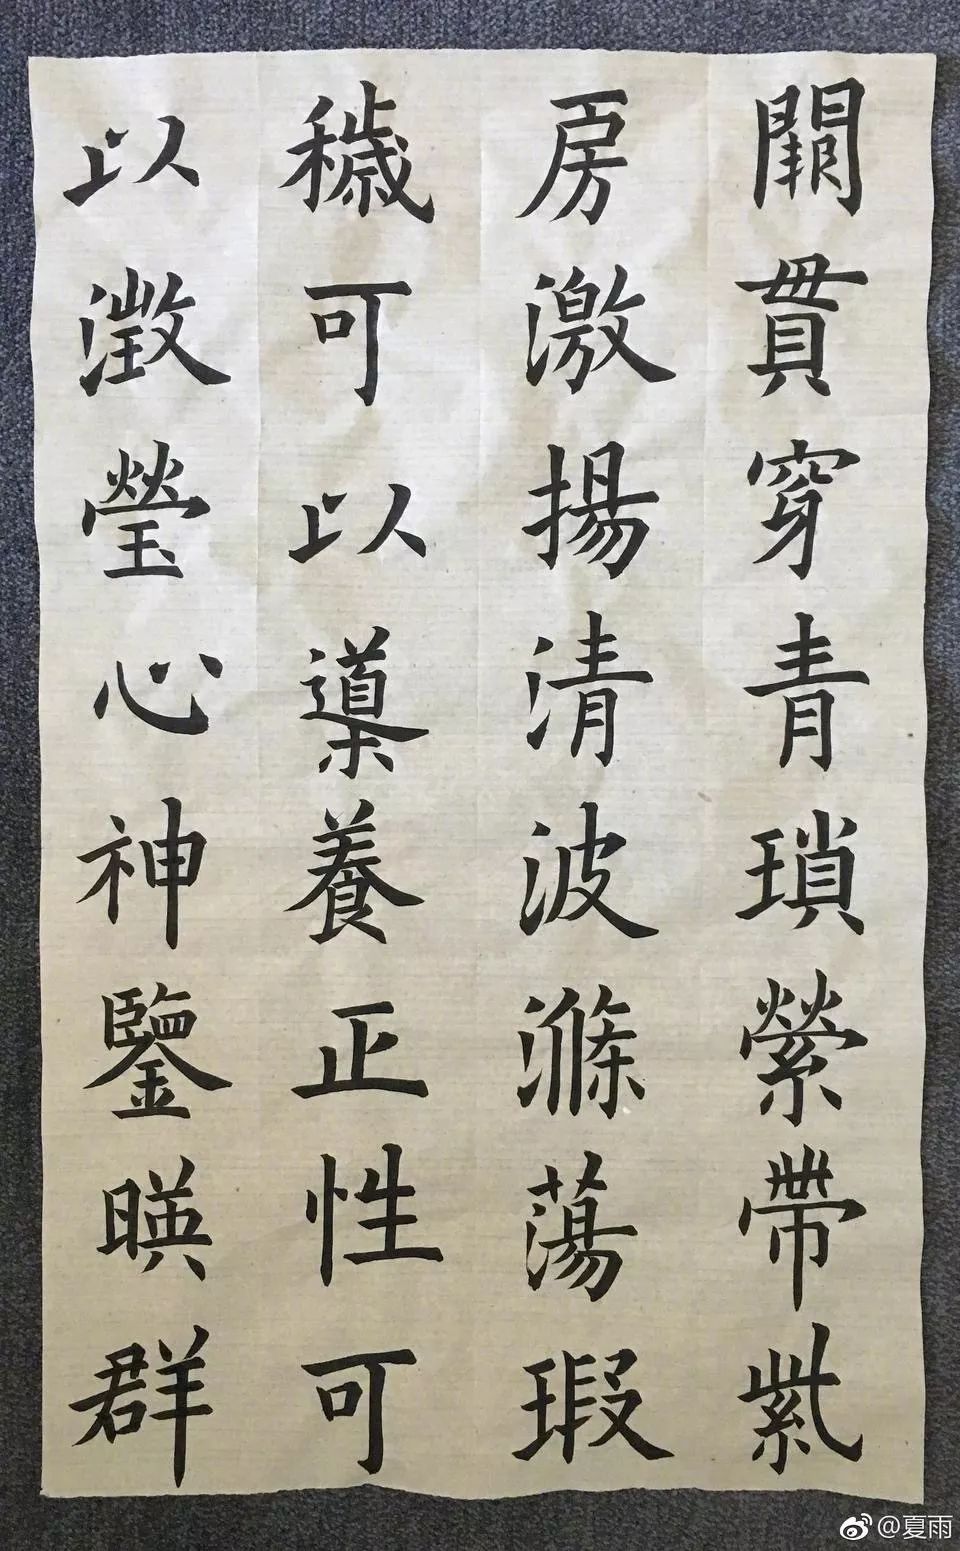 闈貫穿青瑣縈帶紫
房激揚清波滌蕩瑕
穢可以導養正性可
以澂瑩心神鑒暎群
@夏雨